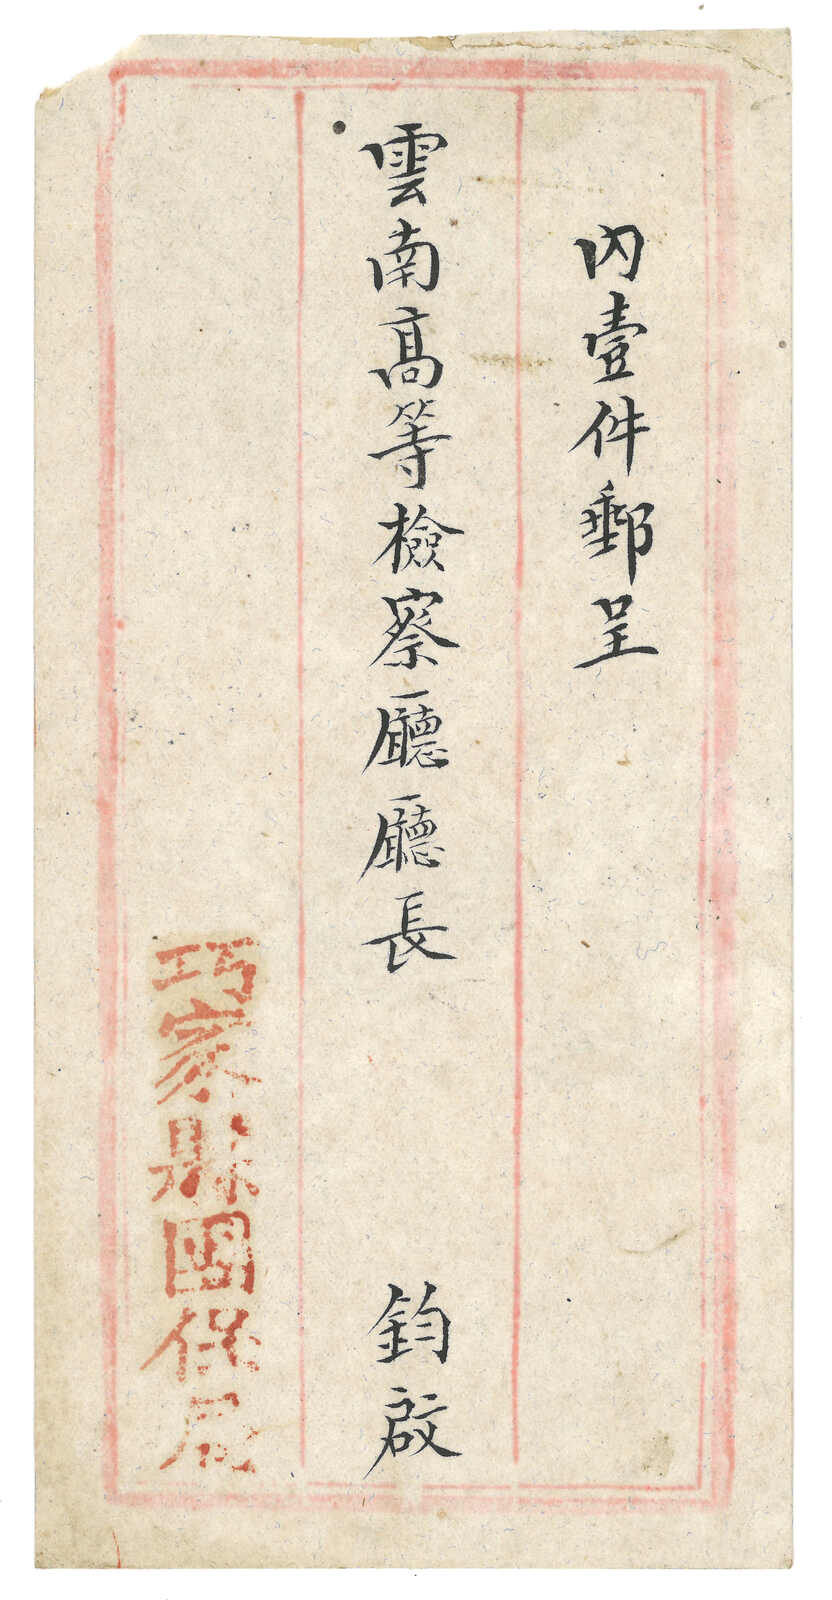 內壹件郵呈
雲南高等檢察廳廳長 鈞啟
巧家縣團保局